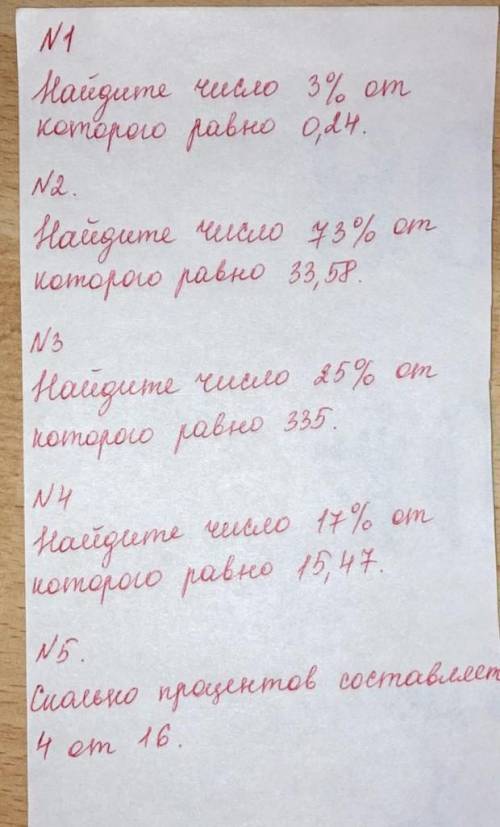 N1
Найдите число 3% от
которого равно 0,24.
N2.
Найдите число 73% от
которого равно 33,58.
N3
Найдите число 25% от
которого равно 335.
N4
Найдите число 17% от
которого равно 15,47.
N5.
Сколько процентов составляет
4 от 16.